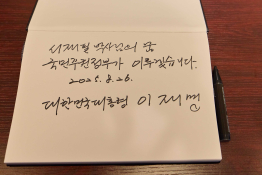 서재필 박사님의 꿈
국민주권정부가 이루겠습니다.
2025. 8. 26.
대한민국 대통령 이재명